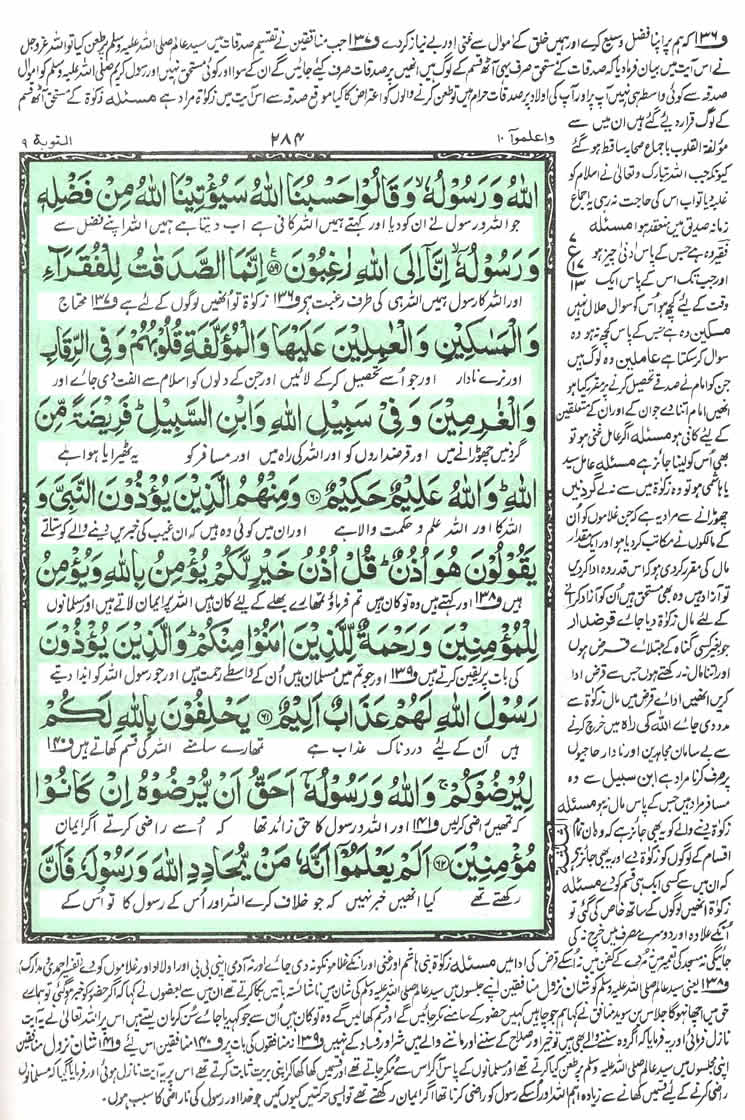 و۱۳۶ کہ ہم پر اپنا فضل وسیع کرے اور ہمیں خلق کے اموال سے غنی اور بے نیاز کردے و۱۳۷ جب منافقین نے تقسیم صدقات میں سید عالم صلی اللہ علیہ وسلم پر طعن کیا تو اللہ عزوجل
نے اس آیت میں بیان فرمادیا کہ صدقات کے مستحق صرف یہی آٹھ قسم کے لوگ ہیں انھیں پر صدقات صرف کیے جائیں گے ان کے سوا اور کوئی مستحق نہیں اور رسول کریم صلی اللہ علیہ وسلم کو اموال
صدقہ سے کوئی واسطہ ہی نہیں آپ پر اور آپ کی اولاد پر صدقات حرام ہیں تو طعن کرنے والوں کو اعتراض کا کیا موقع صدقہ سے اس آیت میں زکوٰۃ مراد ہے مسئلہ زکوٰۃ کے مستحق آٹھ قسم
واعلموا ۱۰
۲۸۴
التوبة ۹
کے لوگ قرار دیئے گئے ہیں ان میں سے
مؤلفۃ القلوب باجماع صحابہ ساقط ہوگئے
کیونکہ جب اللہ تبارک و تعالیٰ نے اسلام کو
غلبہ دیا تو اب اس کی حاجت نہ رہی یہ اجماع
زمانہ صدیق میں منعقد ہوا مسئلہ
فقیر وہ ہے جس کے پاس ادنیٰ چیز ہو
اور جب تک اس کے پاس ایک
وقت کے لیے کچھ ہو اس کو سوال حلال نہیں
مسکین وہ ہے جس کے پاس کچھ نہ ہو وہ
سوال کرسکتا ہے عاملین وہ لوگ ہیں
جن کو امام نے صدقے تحصیل کرنے پر مقرر کیا ہو
انھیں امام اتنا دے جو ان کے اور ان کے متعلقین
کے لیے کافی ہو مسئلہ اگر عامل غنی ہو تو
بھی اس کو لینا جائز ہے مسئلہ عامل سید
یا ہاشمی ہو تو وہ زکوٰۃ میں سے نہ لے گردنیں
چھوڑانے سے مراد یہ ہے کہ جن غلاموں کو ان
کے مالکوں نے مکاتب کردیا ہو اور ایک مقدار
مال کی مقرر کردی ہو کہ اس قدر وہ ادا کردیں
تو آزاد ہیں وہ بھی مستحق ہیں ان کو آزاد کرانے
کے لیے مال زکوٰۃ دیا جائے قرضدار
جو بغیر کسی گناہ کے مبتلائے قرض ہوں
اور اتنا مال نہ رکھتے ہوں جس سے قرض ادا
کریں انھیں ادائے قرض میں مال زکوٰۃ سے
مدد دی جائے اللہ کی راہ میں خرچ کرنے
سے بے سامان مجاہدین اور نادار حاجیوں
پر صرف کرنا مراد ہے ابن سبیل سے وہ
مسافر مراد ہیں جس کے پاس مال نہ ہو مسئلہ
زکوٰۃ دینے والے کو یہ بھی جائز ہے کہ وہ ان تمام
اقسام کے لوگوں کو زکوٰۃ دے اور یہ بھی جائز ہے
کہ ان میں سے کسی ایک ہی قسم کو دے مسئلہ
زکوٰۃ انھیں لوگوں کے ساتھ خاص کی گئی تو
انکے علاوہ اور دوسرے مصرف میں خرچ نہ کی
اللهُ وَرَسُوْلُهٗ ۙ وَقَالُوْا حَسْبُنَا اللهُ سَيُؤْتِيْنَا اللهُ مِنْ فَضْلِهٖ
جو اللہ و رسول نے ان کو دیا اور کہتے ہمیں اللہ کافی ہے اب دیتا ہے ہمیں اللہ اپنے فضل سے
وَرَسُوْلُهٗٓ ۙ اِنَّآ اِلَى اللهِ رٰغِبُوْنَ ﴿۵۹﴾ اِنَّمَا الصَّدَقٰتُ لِلْفُقَرَآءِ
اور اللہ کا رسول ہمیں اللہ ہی کی طرف رغبت ہے و۱۳۶ زکوٰۃ تو انھیں لوگوں کے لیے ہے و۱۳۷ محتاج
وَالْمَسٰكِيْنِ وَالْعٰمِلِيْنَ عَلَيْهَا وَالْمُؤَلَّفَةِ قُلُوْبُهُمْ وَفِى الرِّقَابِ
اور نرے نادار اور جو اسے تحصیل کرکے لائیں اور جن کے دلوں کو اسلام سے الفت دی جائے اور
وَالْغٰرِمِيْنَ وَفِيْ سَبِيْلِ اللهِ وَابْنِ السَّبِيْلِ ؕ فَرِيْضَةً مِّنَ
گردنیں چھوڑانے میں اور قرضداروں کو اور اللہ کی راہ میں اور مسافر کو یہ ٹھیرایا ہوا ہے
اللهِ ؕ وَاللهُ عَلِيْمٌ حَكِيْمٌ ﴿۶۰﴾ وَمِنْهُمُ الَّذِيْنَ يُؤْذُوْنَ النَّبِىَّ وَ
اللہ کا اور اللہ علم و حکمت والا ہے اور ان میں کوئی وہ ہیں کہ ان غیب کی خبریں دینے والے کو ستاتے
يَقُوْلُوْنَ هُوَ اُذُنٌ ؕ قُلْ اُذُنُ خَيْرٍ لَّكُمْ يُؤْمِنُ بِاللهِ وَيُؤْمِنُ
ہیں و۱۳۸ اور کہتے ہیں وہ تو کان ہیں تم فرماؤ تمھارے بھلے کے لیے کان ہیں اللہ پر ایمان لاتے ہیں اور مسلمانوں
لِلْمُؤْمِنِيْنَ وَرَحْمَةٌ لِّلَّذِيْنَ اٰمَنُوْا مِنْكُمْ ؕ وَالَّذِيْنَ يُؤْذُوْنَ
کی بات پر یقین کرتے ہیں و۱۳۹ اور جو تم میں مسلمان ہیں ان کے واسطے رحمت ہیں اور جو رسول اللہ کو ایذا دیتے
رَسُوْلَ اللهِ لَهُمْ عَذَابٌ اَلِيْمٌ ﴿۶۱﴾ يَحْلِفُوْنَ بِاللهِ لَكُمْ
ہیں ان کے لیے دردناک عذاب ہے تمھارے سامنے اللہ کی قسم کھاتے ہیں و۱۴۰
لِيُرْضُوْكُمْ ۚ وَاللهُ وَرَسُوْلُهٗٓ اَحَقُّ اَنْ يُّرْضُوْهُ اِنْ كَانُوْا
کہ تمھیں راضی کرلیں و۱۴۱ اور اللہ و رسول کا حق زائد تھا کہ اسے راضی کرتے اگر ایمان
مُؤْمِنِيْنَ ﴿۶۲﴾ اَلَمْ يَعْلَمُوْٓا اَنَّهٗ مَنْ يُّحَادِدِ اللهَ وَرَسُوْلَهٗ فَاَنَّ
رکھتے تھے کیا انھیں خبر نہیں کہ جو خلاف کرے اللہ اور اس کے رسول کا تو اس کے
جائیگی نہ مسجد کی تعمیر میں نہ مردے کے کفن میں نہ اسکے قرض کی ادا میں مسئلہ زکوٰۃ بنی ہاشم اور غنی اور انکے غلاموں کو نہ دی جائے اور نہ آدمی اپنی بی بی اور اولاد اور غلاموں کو دے تفسیر احمدی مدارک
و۱۳۸ یعنی سید عالم صلی اللہ علیہ وسلم کو شان نزول منافقین اپنے جلسوں میں سید عالم صلی اللہ علیہ وسلم کی شان میں ناشائستہ باتیں بکا کرتے تھے ان میں سے بعضوں نے کہا کہ اگر حضور کو خبر ہوگئی تو ہمارے
حق میں اچھا نہ ہوگا جلاس بن سوید منافق نے کہا ہم جو چاہیں کہیں حضور کے سامنے مکر جائیں گے اور قسم کھالیں گے وہ تو کان ہیں ان سے جو کہدیا جائے سن کر مان لیتے ہیں اس پر اللہ تعالیٰ نے یہ آیت
نازل فرمائی اور یہ فرمایا کہ اگر وہ سننے والے بھی ہیں تو خیر اور صلاح کے سننے اور ماننے والے ہیں شر اور فساد کے نہیں و۱۳۹ نہ منافقوں کی بات پر و۱۴۰ منافقین اس لیے و۱۴۱ شان نزول منافقین
اپنی مجلسوں میں سید عالم صلی اللہ علیہ وسلم پر طعن کیا کرتے تھے اور مسلمانوں کے پاس آکر اس سے مکر جاتے تھے اور قسمیں کھا کھا کر اپنی بریت ثابت کرتے تھے اس پر یہ آیت نازل ہوئی اور فرمایا گیا کہ مسلمانوں
کو راضی کرنے کے لیے قسمیں کھانے سے زیادہ اہم اللہ اور اسکے رسول کو راضی کرنا تھا اگر ایمان رکھتے تھے تو ایسی حرکتیں کیوں کیں جو خدا اور رسول کی ناراضی کا سبب ہوں۔